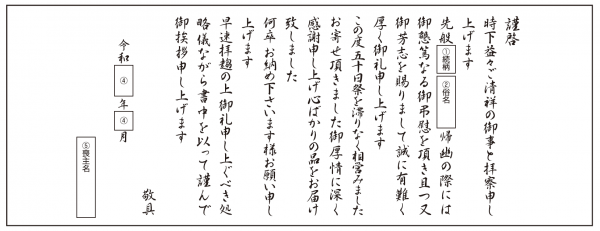 謹啓
時下益々ご清祥の御事と拝察申し
上げます
先般①続柄②俗名帰幽の際には
御懇篤なる御弔慰を頂き且つ又
御芳志を賜りまして誠に有難く
厚く御礼申し上げます
この度五十日祭を滞りなく相営みました
お寄せ頂きました御厚情に深く
感謝申し上げ心ばかりの品をお届け
致しました
何卒お納め下さいます様お願い申し
上げます
早速拝趨の上御礼申し上ぐべき処
略儀ながら書中を以って謹んで
御挨拶申し上げます
敬具
令和④年④月
⑤喪主名